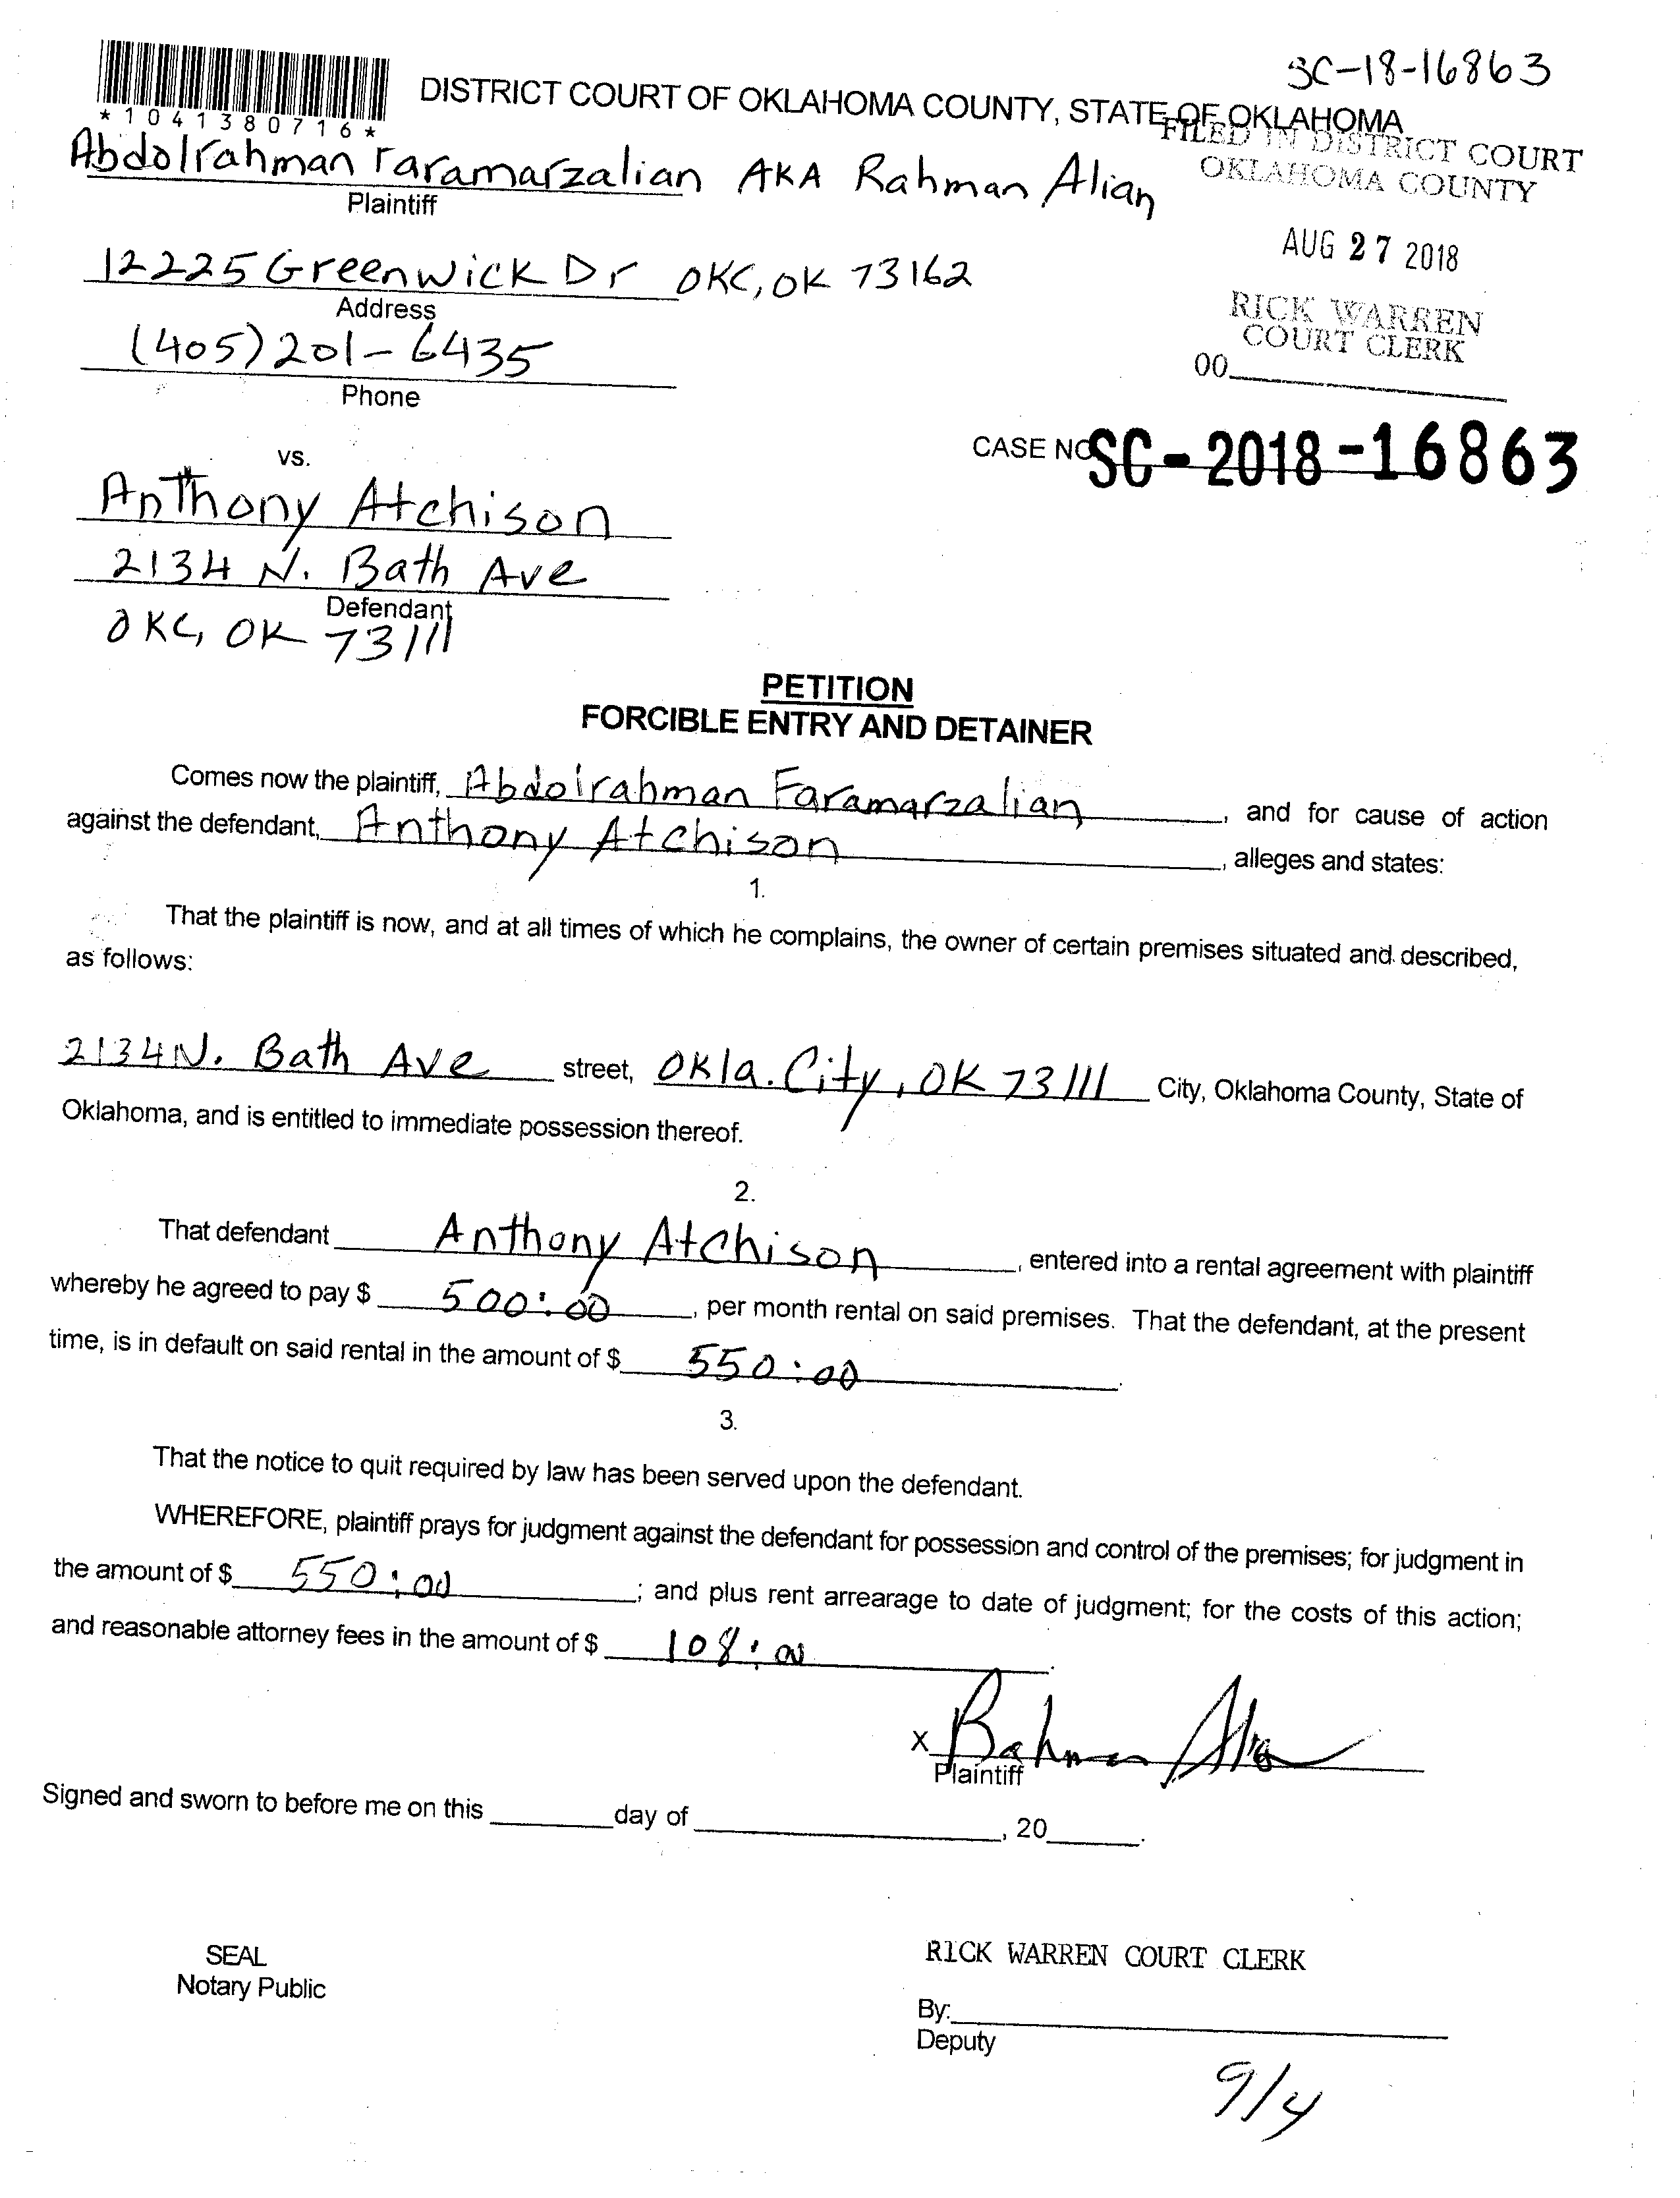 SC-18-16863
DISTRICT COURT OF OKLAHOMA COUNTY, STATE OF OKLAHOMA
*1041380716*
FILED IN DISTRICT COURT
OKLAHOMA COUNTY
Abdolrahman Faramarzalian AKA Rahman Alian
Plaintiff
AUG 27 2018
12225 Greenwick Dr OKC, OK 73162
Address
RICK WARREN
COURT CLERK
(405) 201-6435
00
Phone
CASE NO SC-2018-16863
vs.
Anthony Atchison
2134 N. Bath Ave
Defendant
OKC, OK 73111
PETITION
FORCIBLE ENTRY AND DETAINER
Comes now the plaintiff, Abdolrahman Faramarzalian, and for cause of action
against the defendant, Anthony Atchison, alleges and states:
1.
That the plaintiff is now, and at all times of which he complains, the owner of certain premises situated and described,
as follows:
2134 N. Bath Ave street, Okla. City, OK 73111 City, Oklahoma County, State of
Oklahoma, and is entitled to immediate possession thereof.
2.
That defendant Anthony Atchison, entered into a rental agreement with plaintiff
whereby he agreed to pay $ 500:00, per month rental on said premises. That the defendant, at the present
time, is in default on said rental in the amount of $ 550:00.
3.
That the notice to quit required by law has been served upon the defendant.
WHEREFORE, plaintiff prays for judgment against the defendant for possession and control of the premises; for judgment in
the amount of $ 550:00; and plus rent arrearage to date of judgment; for the costs of this action;
and reasonable attorney fees in the amount of $ 108:00.
X Rahman Alian
Plaintiff
Signed and sworn to before me on this day of , 20 .
SEAL
Notary Public
RICK WARREN COURT CLERK
By:
Deputy
9/4